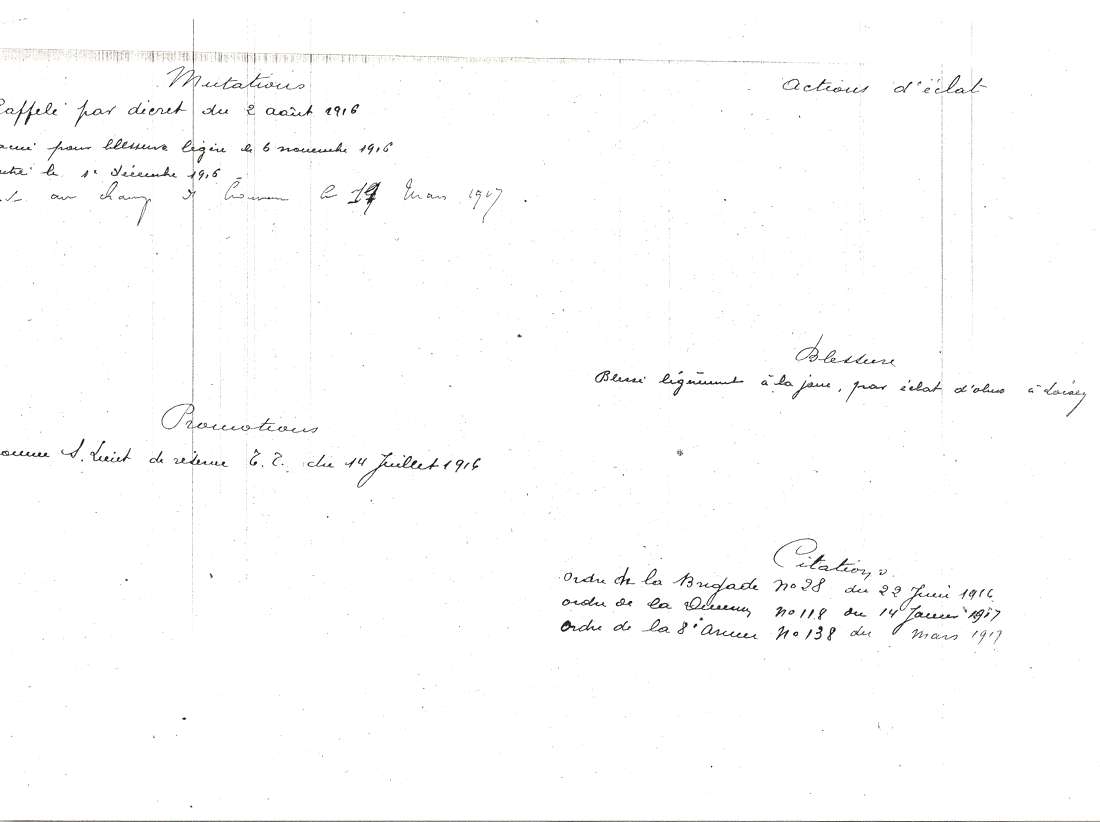 Mutations
Rappelé par décret du 2 août 1916
pour blessure légère le 6 novembre 1916
le 1e Décembre 1916
au champ d' honneur le 19 Mars 1917.
Promotions
S. Lieut de réserve T. T. du 14 Juillet 1916
Actions d'éclat
Blessure
Blessé légèrement à la joue, par éclat d'obus à
Citations
ordre de la Brigade No 28 du 22 Juin 1916
ordre de la Division No 118 du 14 Janvier 1917
ordre de la 8e Armée No 138 du Mars 1917